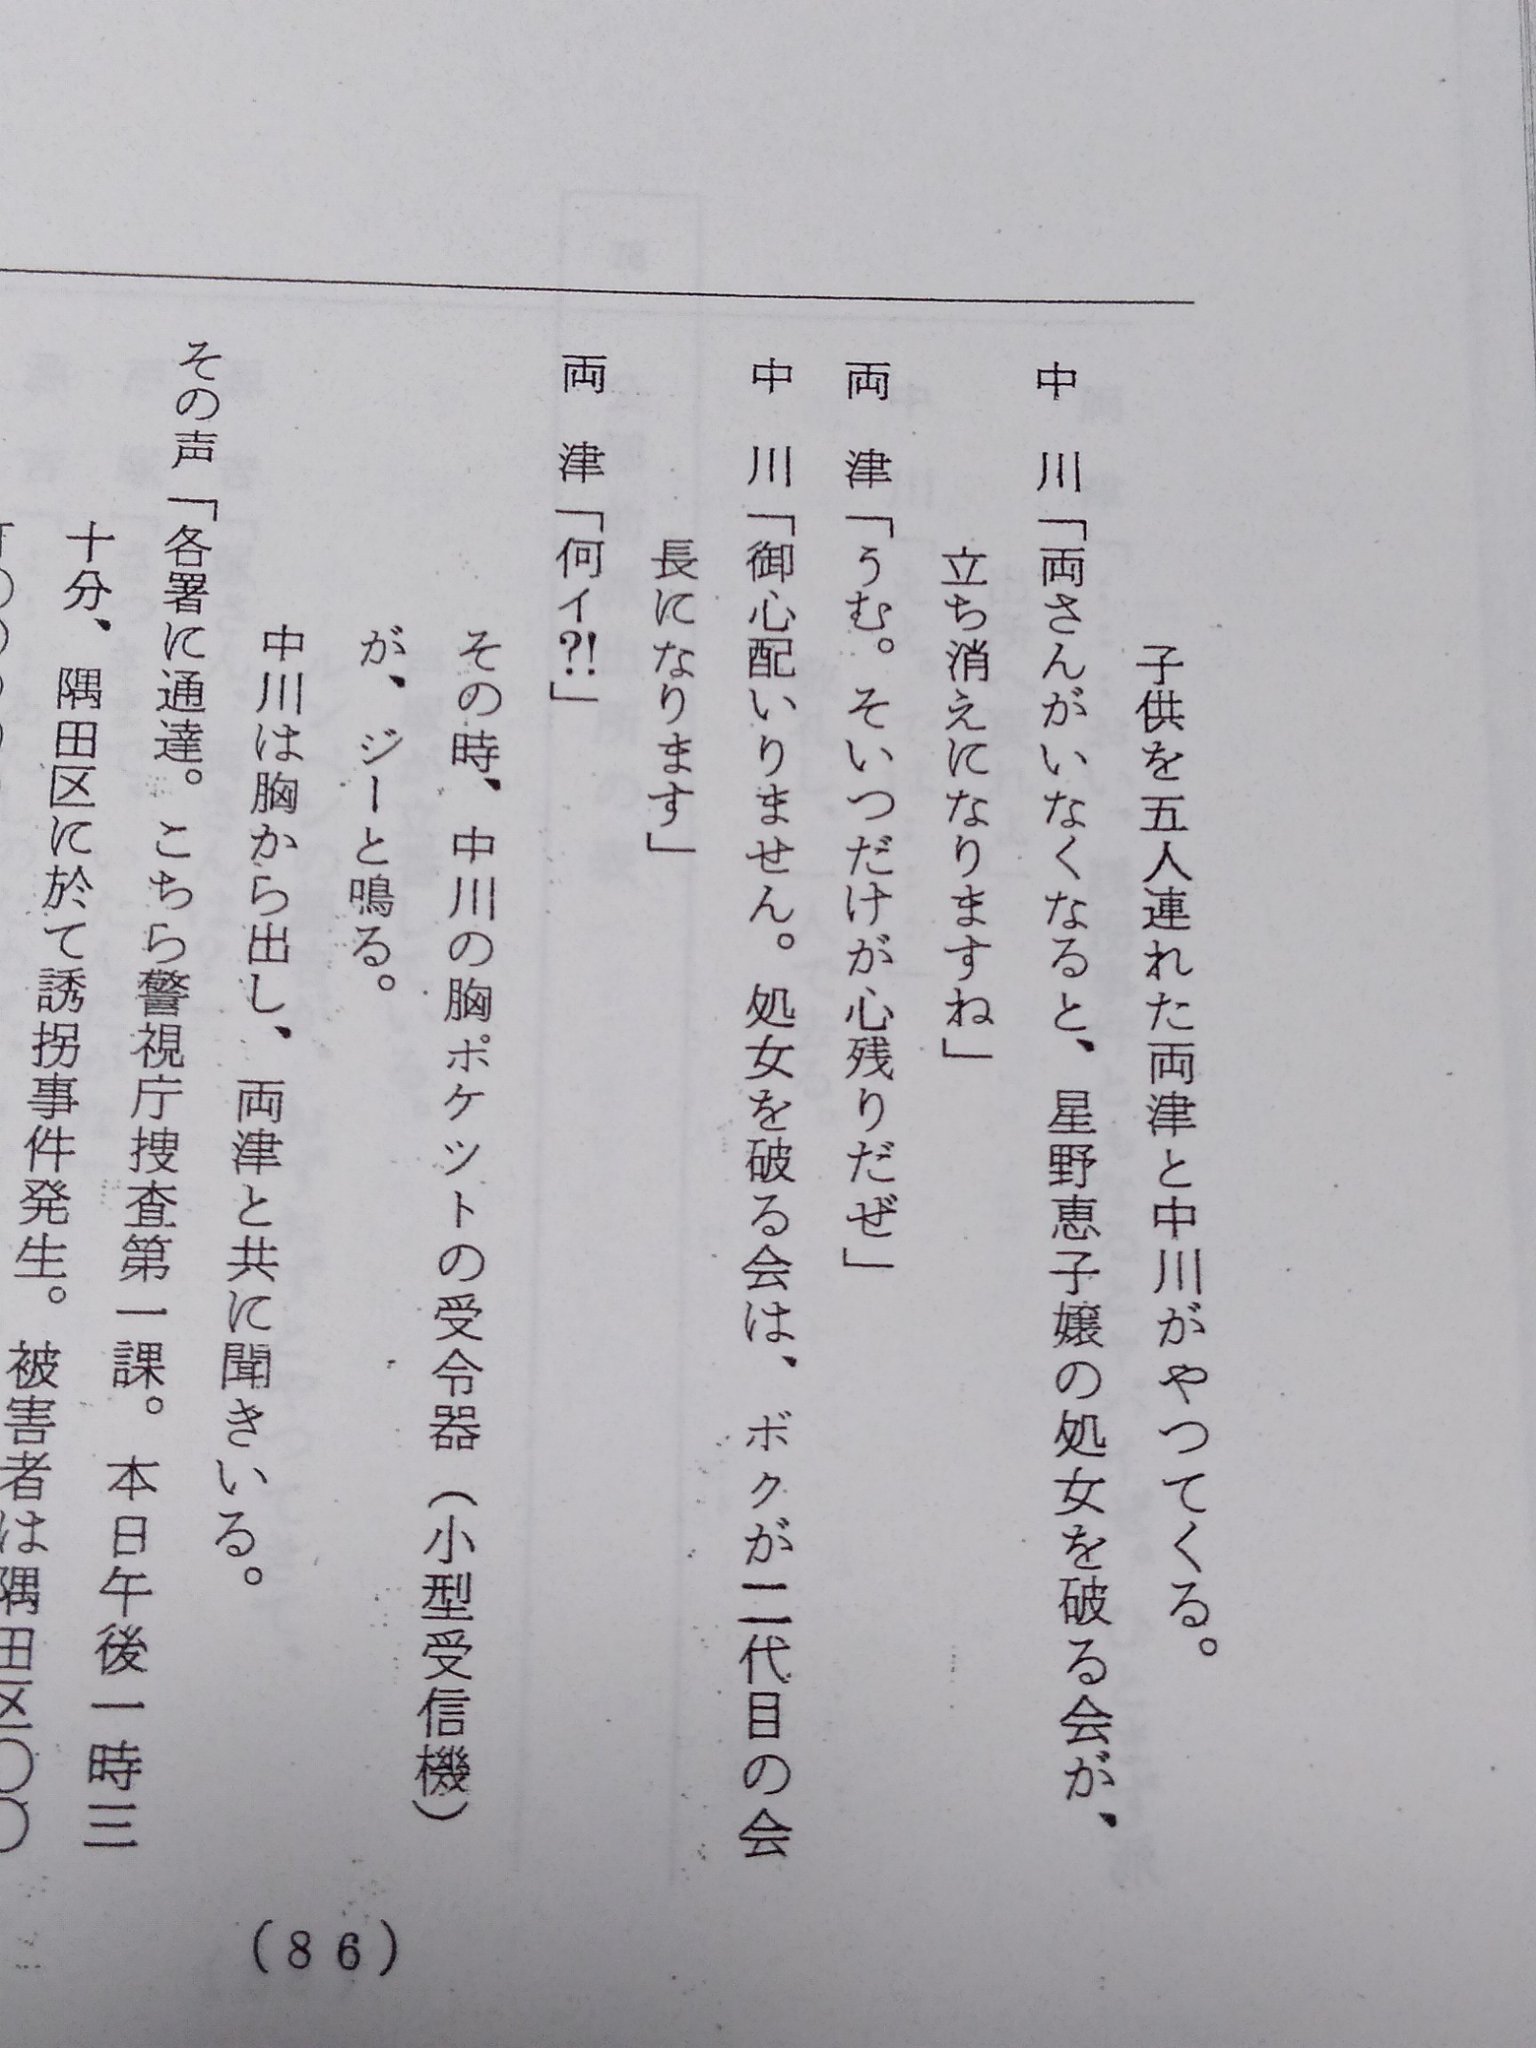 子供を五人連れた両津と中川がやつてくる。
中　川「両さんがいなくなると、星野恵子嬢の処女を破る会が、
立ち消えになりますね」
両　津「うむ。そいつだけが心残りだぜ」
中　川「御心配いりません。処女を破る会は、ボクが二代目の会
長になります」
両　津「何ィ⁈」
その時、中川の胸ポケットの受令器（小型受信機）
が、ジーと鳴る。
中川は胸から出し、両津と共に聞きいる。
その声「各署に通達。こちら警視庁捜査第一課。本日午後一時三
十分、隅田区に於て誘拐事件発生。被害者は隅田区〇〇
（86）